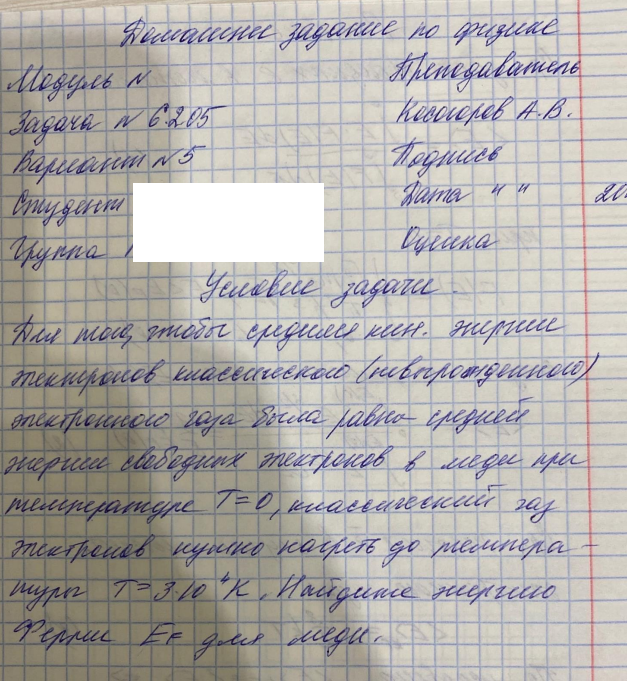 Домашнее задание по физике
Модуль N
Преподаватель
Задача N 6.2.05
Косогоров А.В.
Вариант N 5
Подпись
Студент
Дата " " 20
Группа
Оценка
Условие задачи.
Для того, чтобы средняя кин. энергия
электронов классического (невырожденного)
электронного газа была равна средней
энергии свободных электронов в меди при
температуре T=0, классический газ
электронов нужно нагреть до темпера-
туры T= 3·10⁴K. Найдите энергию
Ферми EF для меди.